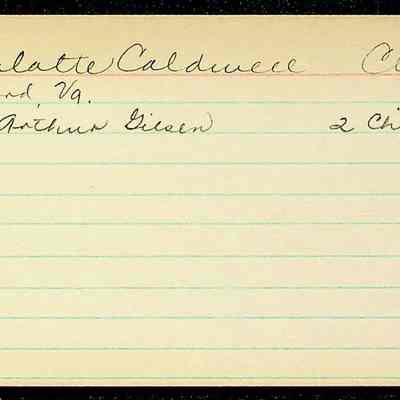 latte Caldwell Cl
ord, Va.
Arthur Gilsen 2 Chi